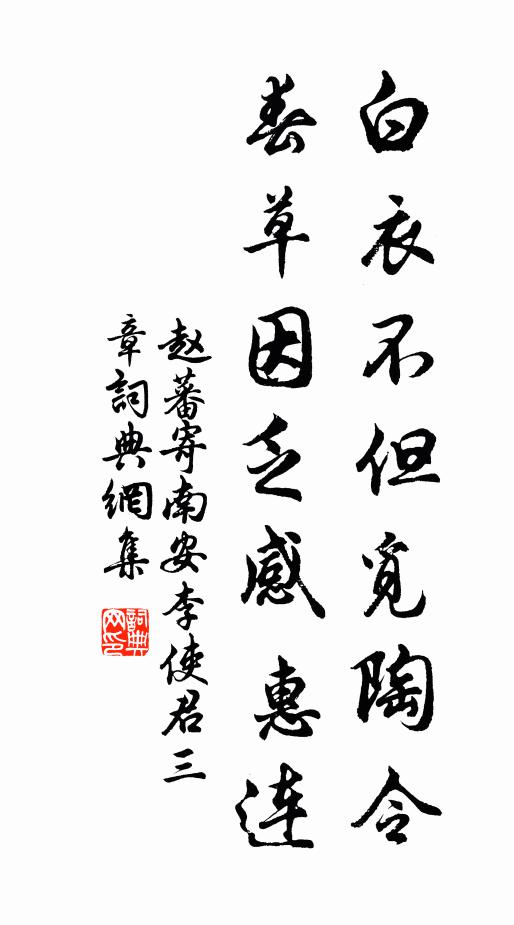 白衣不但觅陶令
春草因乏感惠连
赵蕃寄南安李使君三
章詞典網集
詞典網印